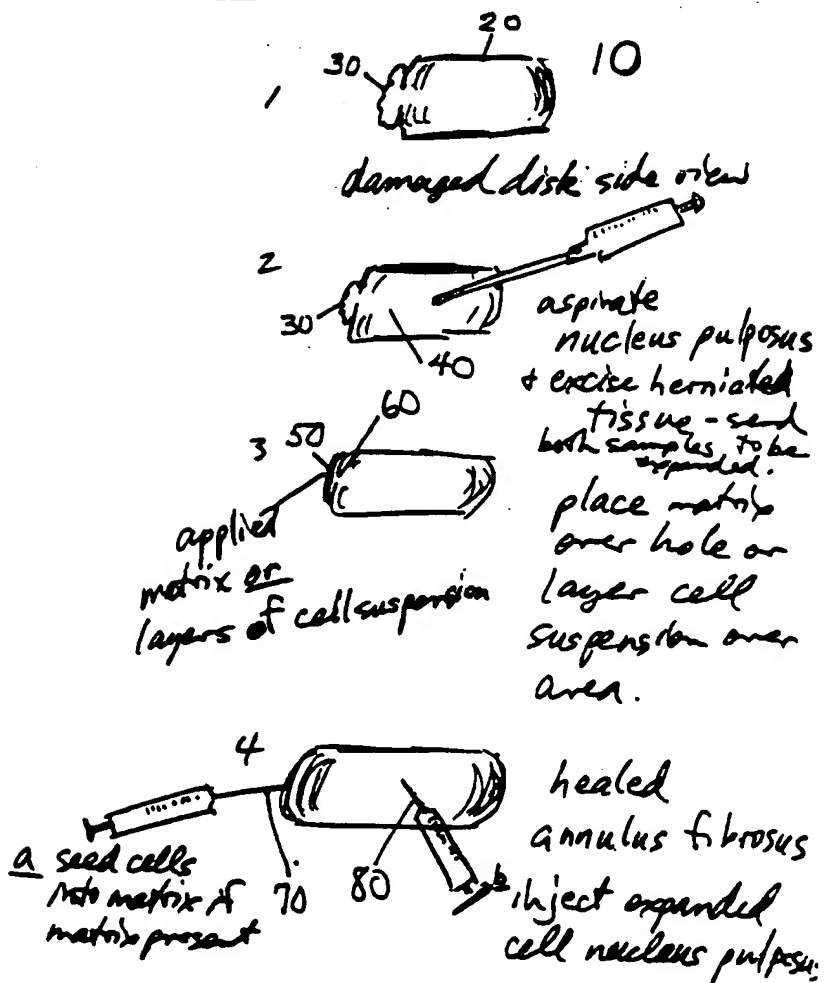 20
10
30
1
damaged disk side view
2
30
40
aspirate
nucleus pulposus
+ excise herniated
tissue - send
both samples to be
expanded.
3 50 60
applied
matrix or
layers of cell suspension
place matrix
over hole or
layer cell
suspension over
area.
4
healed
annulus fibrosus
a seed cells
into matrix if
matrix present
70
80
b
inject expanded
cell nucleus pulposus